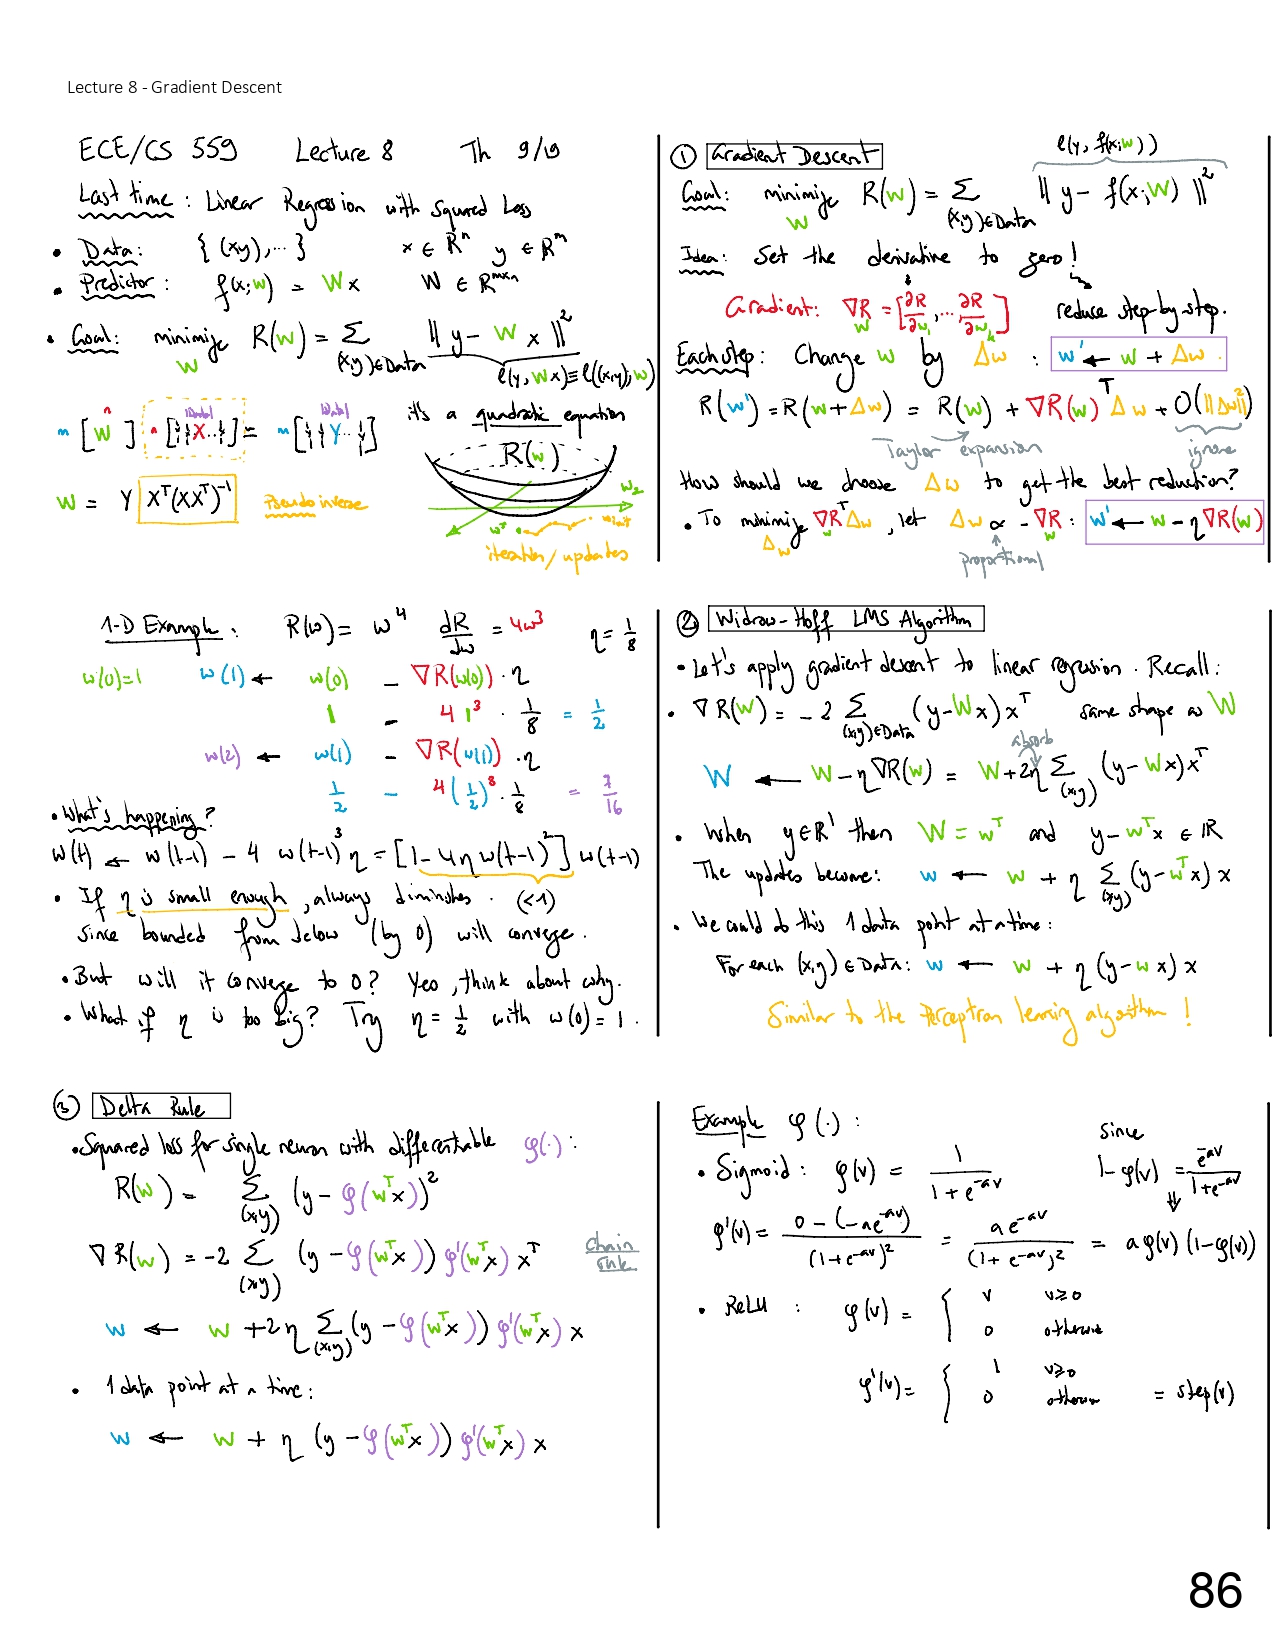 Lecture 8 - Gradient Descent
ECE/CS 559 Lecture 8 Th 9/19
Last time: Linear Regression with Squared Loss
• Data: { (x,y), ... } x ∈ R^n y ∈ R^m
• Predictor: f(x;w) = Wx W ∈ R^{m×n}
• Goal: minimize_W R(w) = Σ_{(x,y)∈Data} || y - W x ||²
ℓ(y, Wx) ≡ ℓ((x,y);w)
m [ W ] n n [ X ... ] = m [ Y ... ] |Data| |Data|
it's a quadratic equation
R(w)
w₂
W = Y X^T(XX^T)^{-1} Pseudo inverse
w* w init
iteration/updates
① Gradient Descent
ℓ(y, f(x;w))
Goal: minimize_W R(w) = Σ_{(x,y)∈Data} || y - f(x;W) ||²
Idea: Set the derivative to zero!
Gradient: ∇_w R = [∂R/∂w₁, ... ∂R/∂w_k] reduce step-by-step.
Each step: Change w by Δw : w' ← w + Δw.
R(w') = R(w+Δw) = R(w) + ∇R(w)^T Δw + O(||Δw||²)
Taylor expansion ignore
How should we choose Δw to get the best reduction?
• To minimize_{Δw} ∇_w R^T Δw, let Δw ∝ -∇_w R : w' ← w - η∇R(w)
proportional
1-D Example: R(w) = w⁴ dR/dw = 4w³ η = 1/8
w(0)=1 w(1) ← w(0) - ∇R(w(0)) · η
1 - 4 1³ · 1/8 = 1/2
w(2) ← w(1) - ∇R(w(1)) · η
1/2 - 4(1/2)³ · 1/8 = 7/16
• What's happening?
w(t) ← w(t-1) - 4 w(t-1)³ η = [1 - 4η w(t-1)²] w(t-1)
• If η is small enough, always diminishes. (<1)
since bounded from below (by 0) will converge.
• But will it converge to 0? Yes, think about why.
• What if η is too big? Try η = 1/2 with w(0) = 1.
② Widrow-Hoff LMS Algorithm
• Let's apply gradient descent to linear regression. Recall:
• ∇R(w) = -2 Σ_{(x,y)∈Data} (y-Wx)x^T same shape as W
absorb
W ← W - η∇R(w) = W + 2η Σ_{(x,y)} (y-Wx)x^T
• When y∈R¹ then W = w^T and y - w^T x ∈ R
The updates become: w ← w + η Σ_{(x,y)} (y-w^T x) x
• We could do this 1 data point at a time:
For each (x,y) ∈ Data: w ← w + η (y-wx) x
Similar to the Perceptron learning algorithm!
③ Delta Rule
• Squared loss for single neuron with differentiable φ(·):
R(w) = Σ_{(x,y)} (y - φ(w^T x))²
∇R(w) = -2 Σ_{(x,y)} (y - φ(w^T x)) φ'(w^T x) x^T chain rule
w ← w + 2η Σ_{(x,y)} (y - φ(w^T x)) φ'(w^T x) x
• 1 data point at a time:
w ← w + η (y - φ(w^T x)) φ'(w^T x) x
Example φ(·): since
• Sigmoid: φ(v) = 1/(1+e^{-av}) 1-φ(v) = e^{-av}/(1+e^{-av})
⇓
φ'(v) = (0-(-ae^{-av}))/(1+e^{-av})² = ae^{-av}/(1+e^{-av})² = aφ(v)(1-φ(v))
• ReLU : φ(v) = { v v≥0
0 otherwise
φ'(v) = { 1 v≥0
0 otherwise = step(v)
86